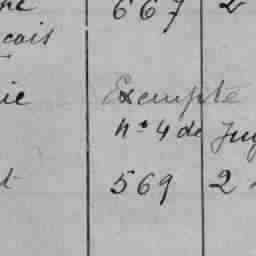 667 2
çois
Exempte
nº 4 de Jug
569 2